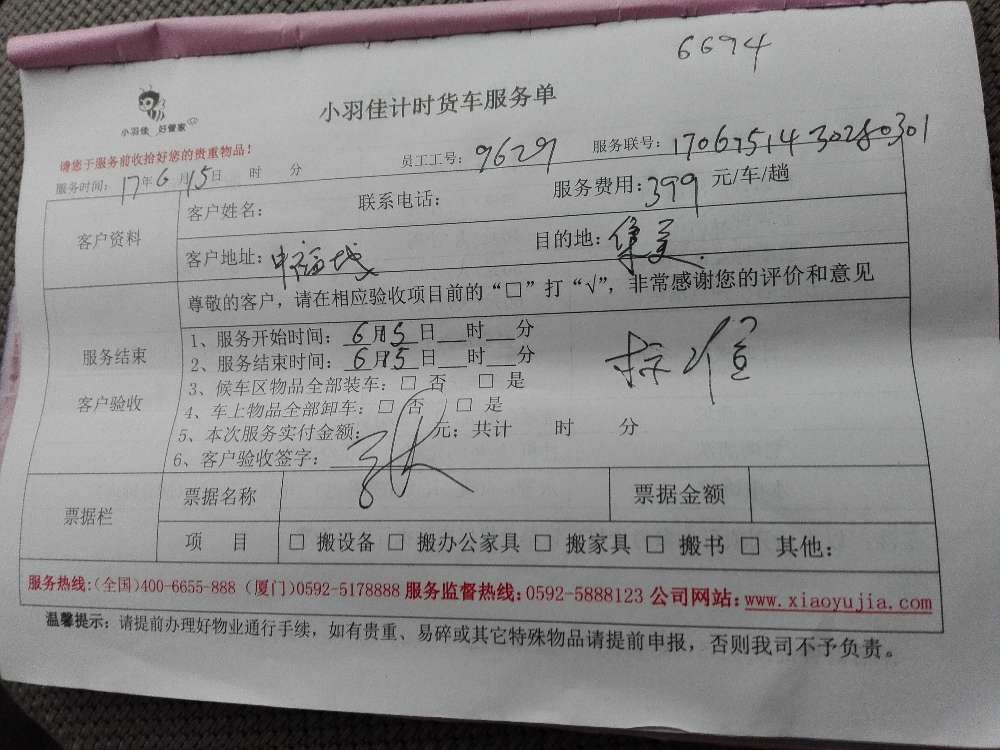 6694
小羽佳 好管家
小羽佳计时货车服务单
请您于服务前收拾好您的贵重物品!
服务时间: 17年6月15日 时 分 员工工号: 9629 服务联号: 1706751430280301
客户资料
客户姓名: 联系电话: 服务费用: 399 元/车/趟
客户地址: 中福城 目的地: 集美
尊敬的客户, 请在相应验收项目前的“□”打“√”, 非常感谢您的评价和意见
服务结束
客户验收
1、服务开始时间: 6月15日__时__分
2、服务结束时间: 6月15日__时__分
3、候车区物品全部装车: □ 否 □ 是
4、车上物品全部卸车: □ 否 □ 是
5、本次服务实付金额: 元; 共计 时 分
6、客户验收签字: 张
票据栏
票据名称 票据金额
项 目 □ 搬设备 □ 搬办公家具 □ 搬家具 □ 搬书 □ 其他:
服务热线:(全国)400-6655-888 (厦门)0592-5178888 服务监督热线: 0592-5888123 公司网站: www.xiaoyujia.com
温馨提示: 请提前办理好物业通行手续, 如有贵重、易碎或其它特殊物品请提前申报, 否则我司不予负责。